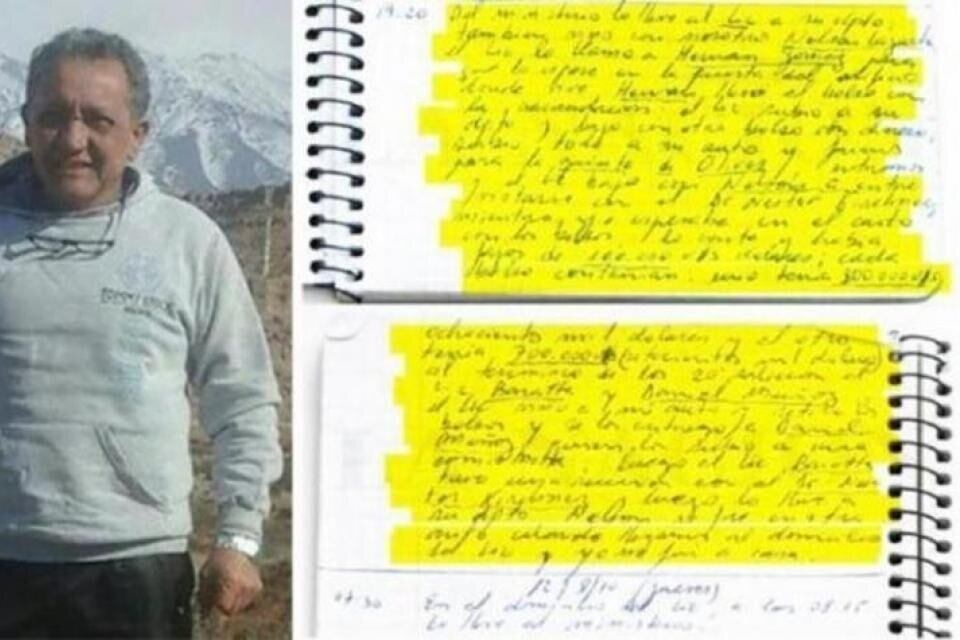 19:20 Del ministerio lo lleve al Lic a su dpto.
tambien vino con nosotros Nelson Lazarte
el Lic lo llamo a Hernan Gomez para
que lo espere en la puerta del edificio
donde vive Hernan llevo el bolso con
la recaudacion, el Lic subio a su
dpto y bajo con otro bolso con dinero,
todo a mi auto y fuimos
para la quinta de Olivos, entramos
y el Lic bajo con Nelson a entre
con el Dr Nestor Kirchner
mientras yo esperaba en el auto
con los bolsos. Lo y habia
fajos de 100.000 u/s dolares, cada
bolso contenian. uno tenia 800.000 u/s
ochociento mil dolares y el otro
tenia 700.000 (setecientos mil dolares)
al termino de los 20 minutos el
Lic Baratta y Daniel Muñoz
el Lic vino a mi auto y retiro los
bolsos y se los entrego a Daniel
Muñoz y
Luego el Lic Baratta
tuvo una reunion con el Dr Nes
tor Kirchner y luego lo lleve a
su dpto. Nelson se fue en otro
auto cuando llegamos al domicilio
del Lic y yo me fui a casa.
12/8/10 (jueves)
07:30 En el domicilio del Lic, a las 08:15
lo lleve al ministerio.